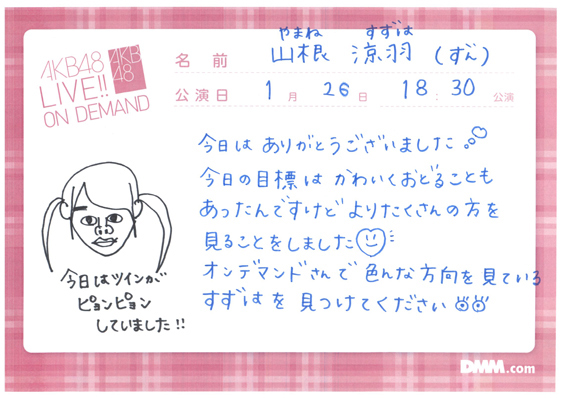 AKB48
LIVE!!
ON DEMAND
AKB
48
やまね すずは
名前 山根 涼羽 (ずん)
公演日 1月 26日 18:30 公演
今日は ありがとうございました
今日の目標は かわいくおどることも
あったんですけど よりたくさんの方を
見ることをしました
オンデマンドさんで 色んな方向を見ている
すずはを 見つけてください
今日はツインが
ピョンピョン
していました!!
DMM.com